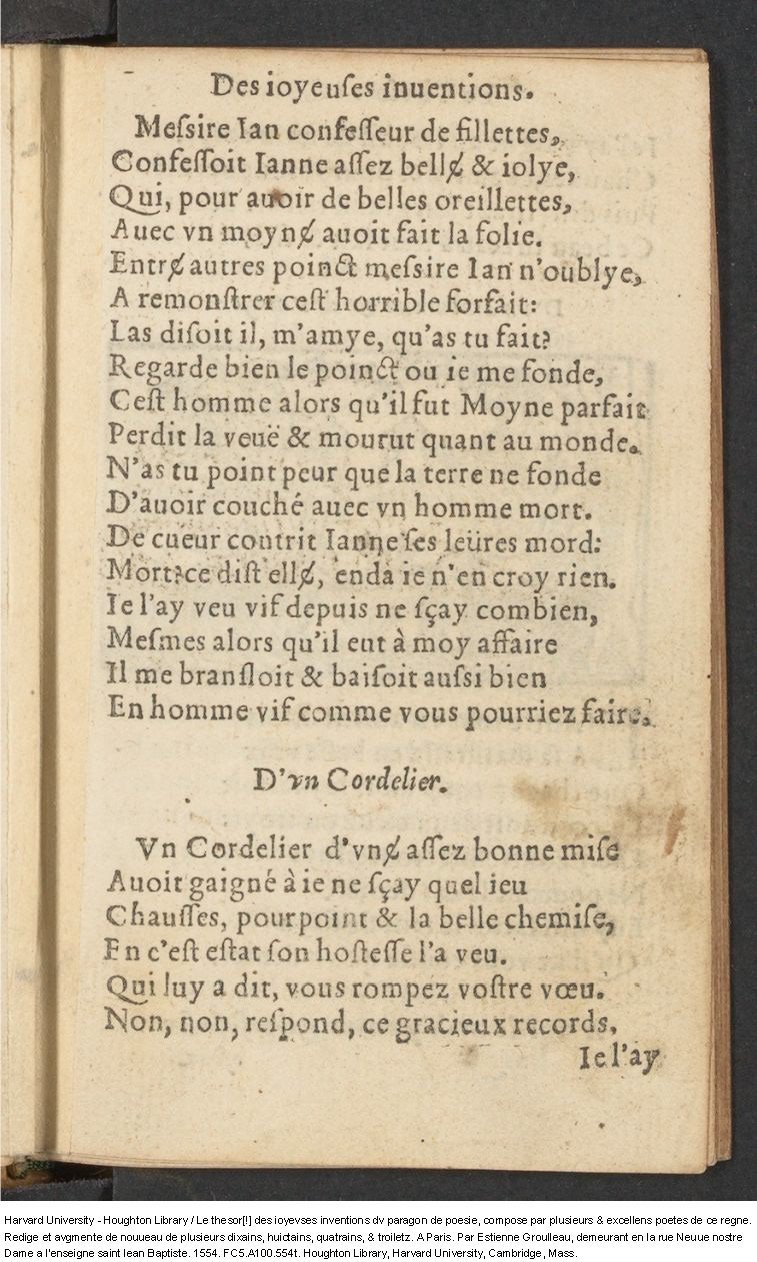 Des ioyeuſes inuentions.
Meſsire Ian confeſſeur de fillettes,
Confeſſoit Ianne aſſez bellɇ & iolye,
Qui, pour auoir de belles oreillettes,
Auec vn moynɇ auoit fait la folie.
Entrɇ autres poinct meſsire Ian n'oublye,
A remonſtrer ceſt horrible forfait:
Las diſoit il, m'amye, qu'as tu fait?
Regarde bien le poinct ou ie me fonde,
Ceſt homme alors qu'il fut Moyne parfait
Perdit la veuë & mourut quant au monde.
N'as tu point peur que la terre ne fonde
D'auoir couché auec vn homme mort.
De cueur contrit Ianne ſes leüres mord:
Mort? ce diſt ellɇ, enda ie n'en croy rien.
Ie l'ay veu vif depuis ne ſçay combien,
Meſmes alors qu'il eut à moy affaire
Il me branſloit & baiſoit auſsi bien
En homme vif comme vous pourriez faire.
D'vn Cordelier.
Vn Cordelier d'vnɇ aſſez bonne miſe
Auoit gaigné à ie ne ſçay quel ieu
Chauſſes, pourpoint & la belle chemiſe,
En c'eſt eſtat ſon hoſteſſe l'a veu.
Qui luy a dit, vous rompez voſtre vœu.
Non, non, reſpond, ce gracieux records.
Ie l'ay
Harvard University - Houghton Library / Le thesor[!] des ioyevses inventions dv paragon de poesie, compose par plusieurs & excellens poetes de ce regne.
Redige et avgmente de nouueau de plusieurs dixains, huictains, quatrains, & troiletz. A Paris. Par Estienne Groulleau, demeurant en la rue Neuue nostre
Dame a l'enseigne saint Iean Baptiste. 1554. FC5.A100.554t. Houghton Library, Harvard University, Cambridge, Mass.